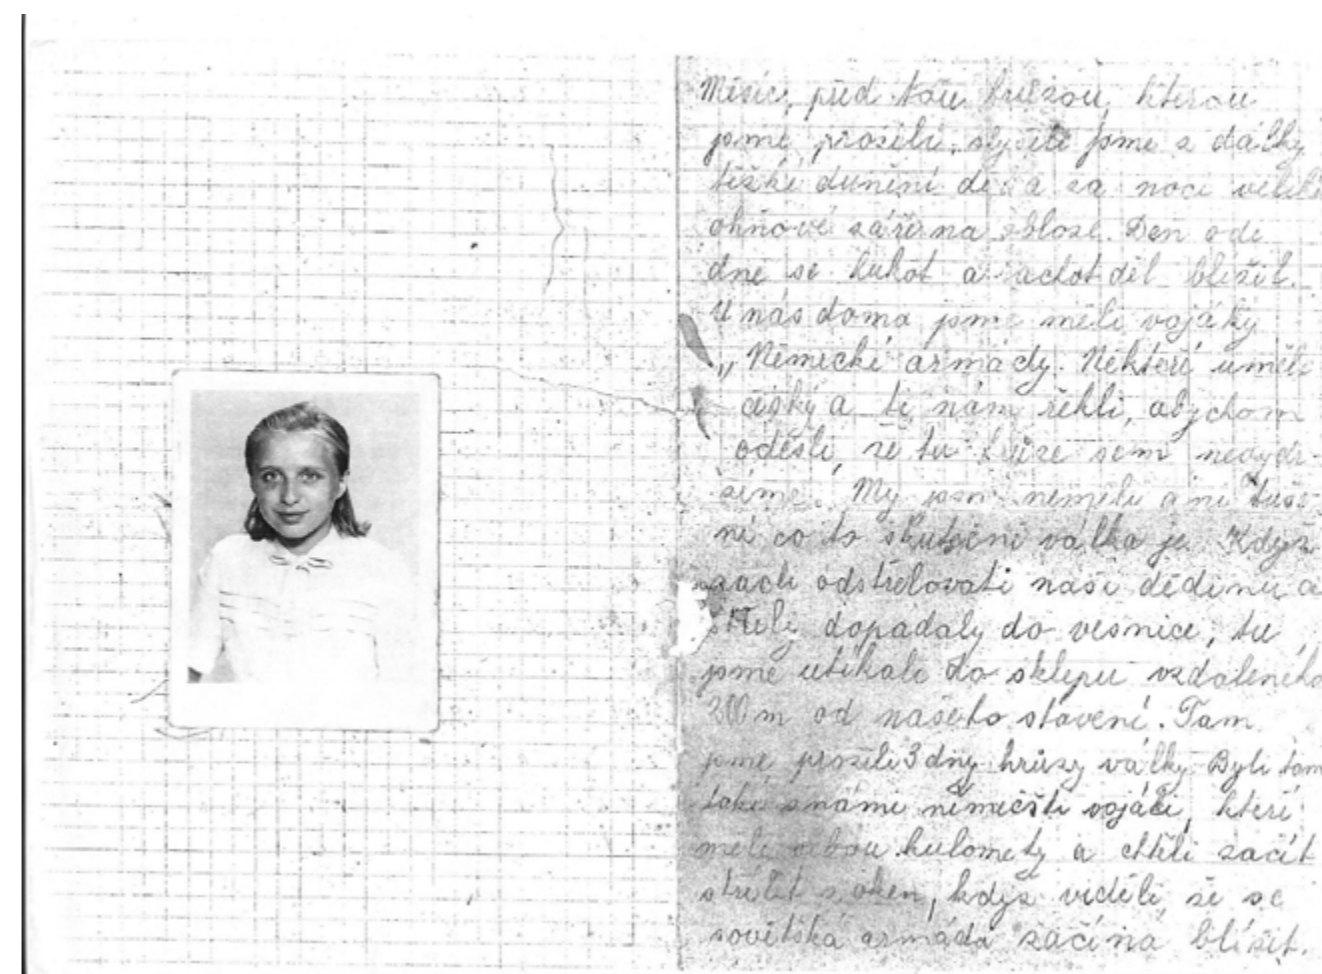 Měsíc, před tou hrůzou, kterou
jsme prožili, slyšeli jsme z dálky
těžké dunění děl a za noci veliké
ohňové záře na obloze. Den ode
dne se hukot a rachot děl blížil.
U nás doma jsme měli vojáky
„Německé armády. Někteří uměli
česky a ti nám řekli, abychom
odešli, že tu hrůzu sem nevydr-
žíme. My jsm neměli ani tuše-
ní co to skutečně válka je. Když
začli odstřelovati naši dědinu a
střely dopadaly do vesnice, tu
jsme utíkali do sklepu vzdáleného
200 m od našeho stavení. Tam
jsme prožili 3 dny hrůzy války. Byli tam
také známí němečtí vojáci, kteří
měli sebou kulomety a chtěli začít
střílet z oken, když viděli že se
sovětská armáda začíná blížit.